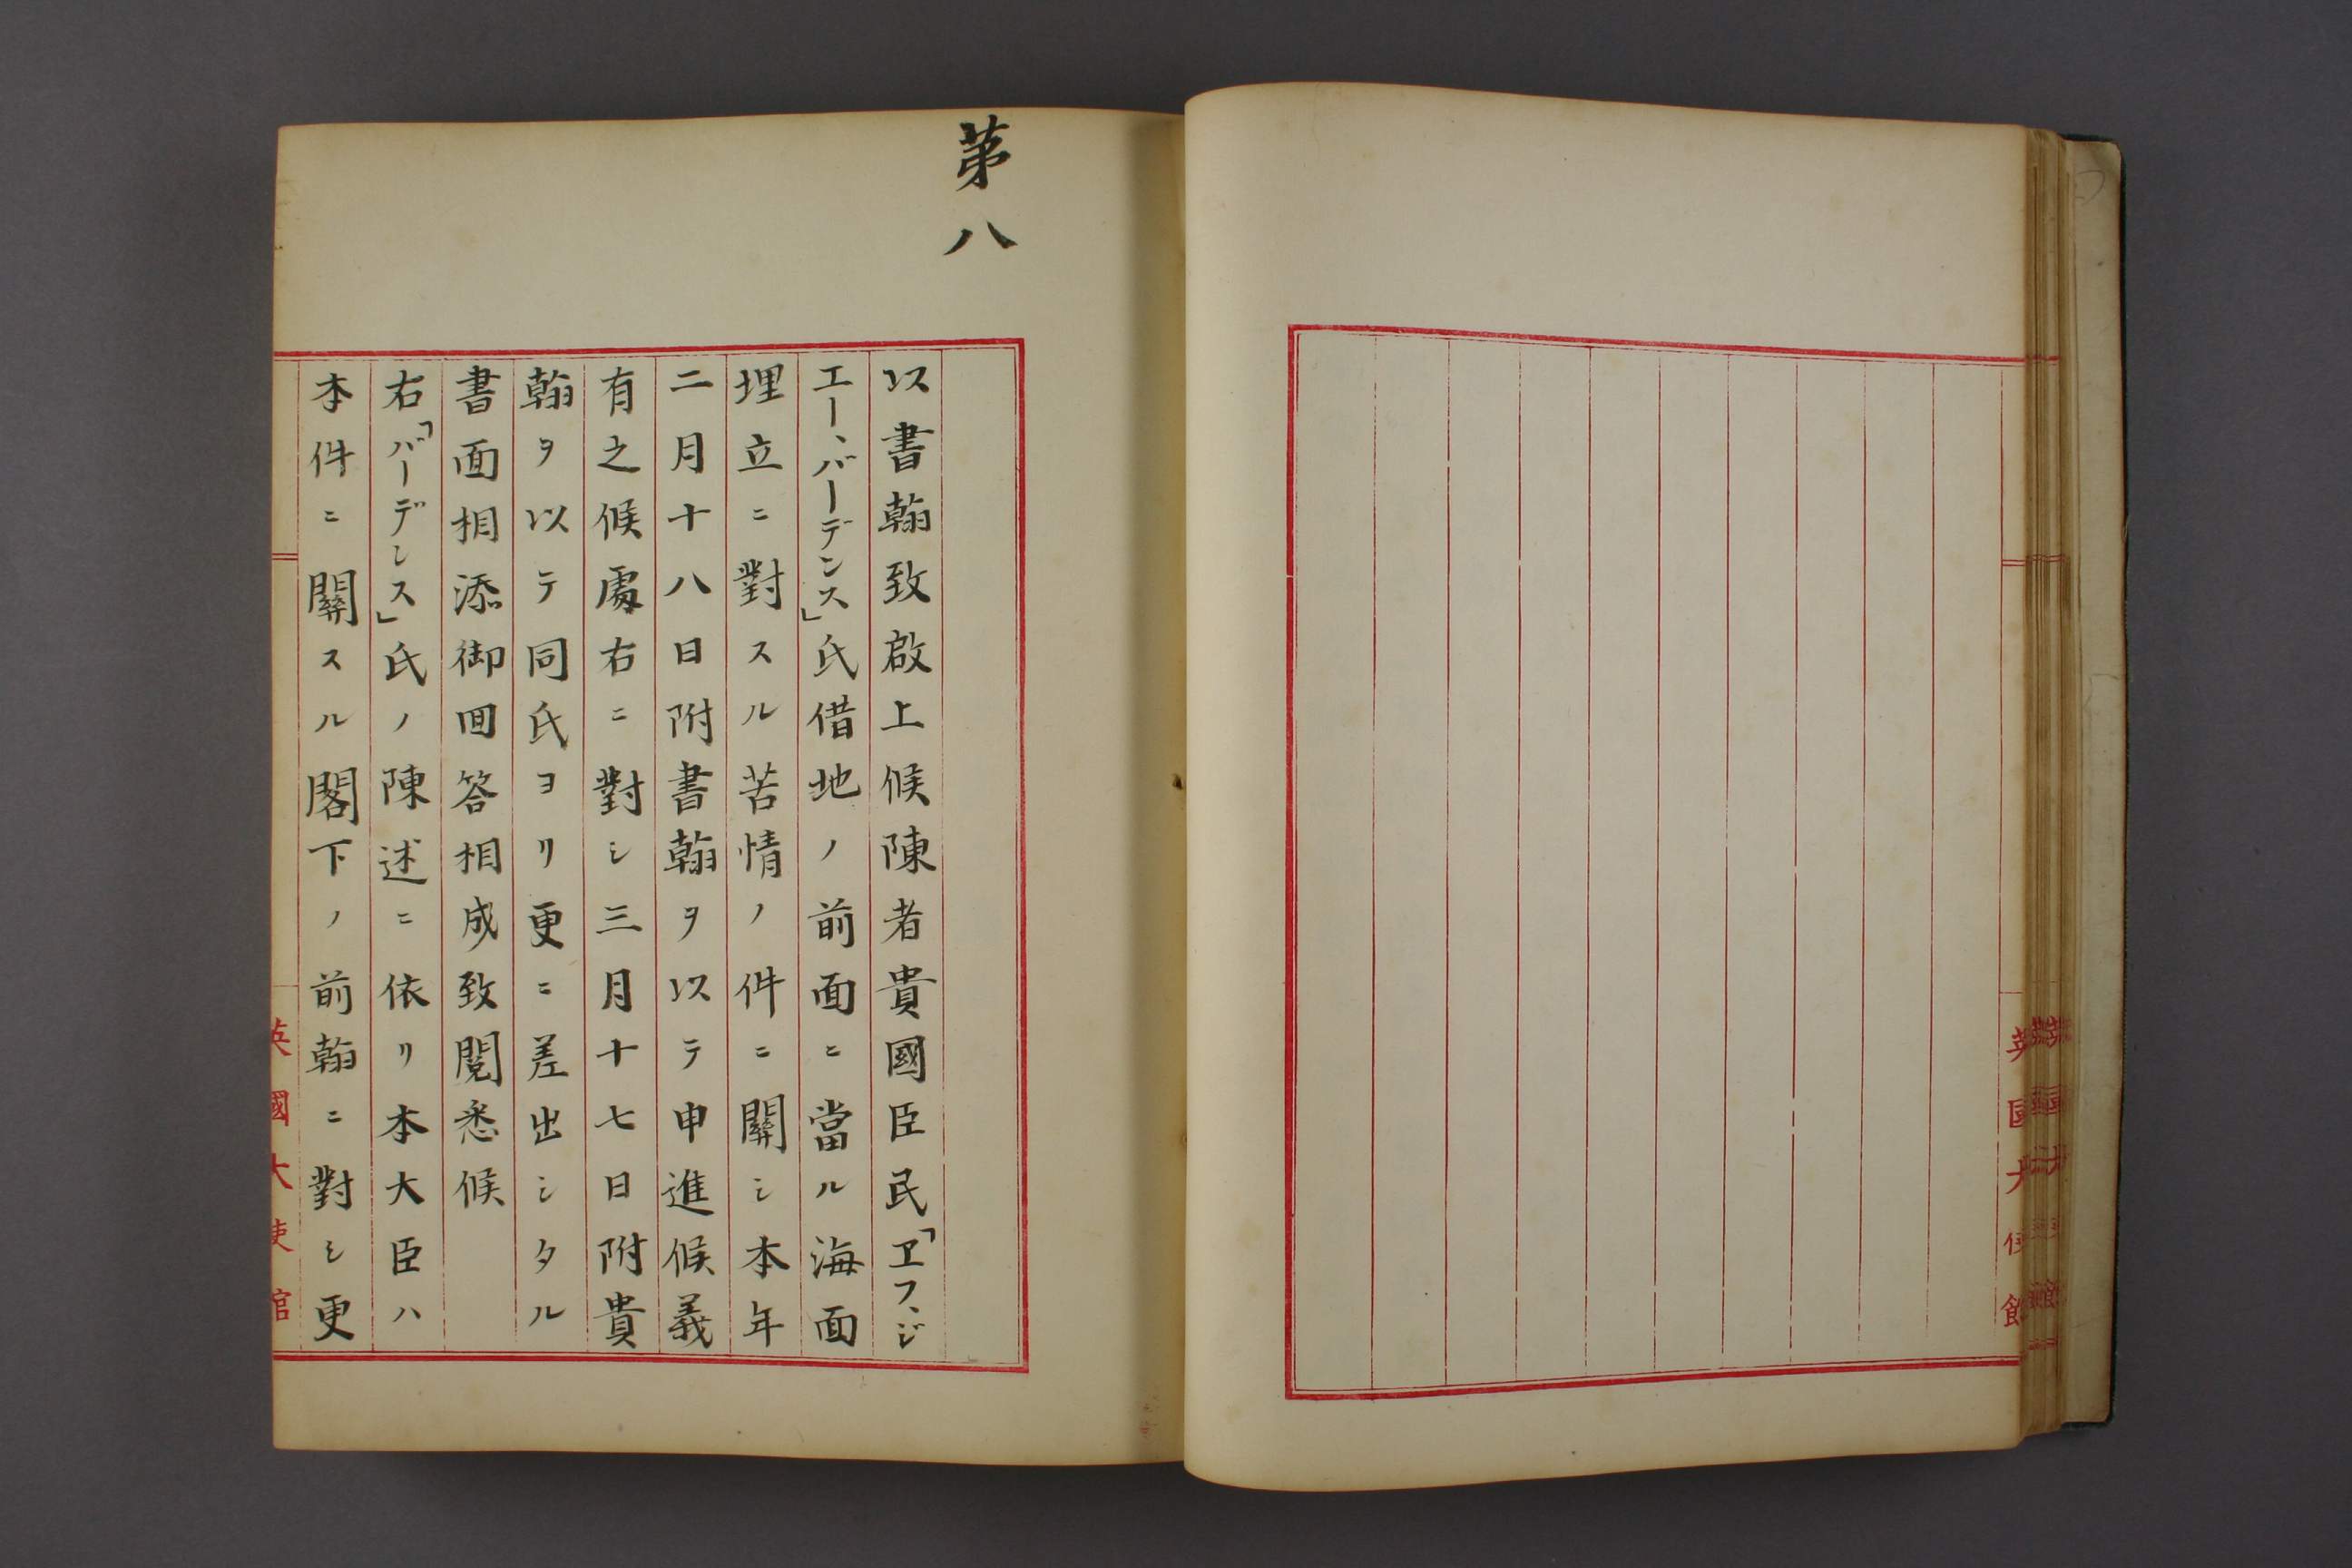 第八
以書翰致啟上候陳者貴國臣民「ヱフ、ジ
エー、バーデンス」氏借地ノ前面ニ當ル海面
埋立ニ對スル苦情ノ件ニ關シ本年
二月十八日附書翰ヲ以テ申進候義
有之候處右ニ對シ三月十七日附貴
翰ヲ以テ同氏ヨリ更ニ差出シタル
書面相添御回答相成致閲悉候
右「バーデンス」氏ノ陳述ニ依リ本大臣ハ
本件ニ關スル閣下ノ前翰ニ對シ更
英國大使館
英國大使館